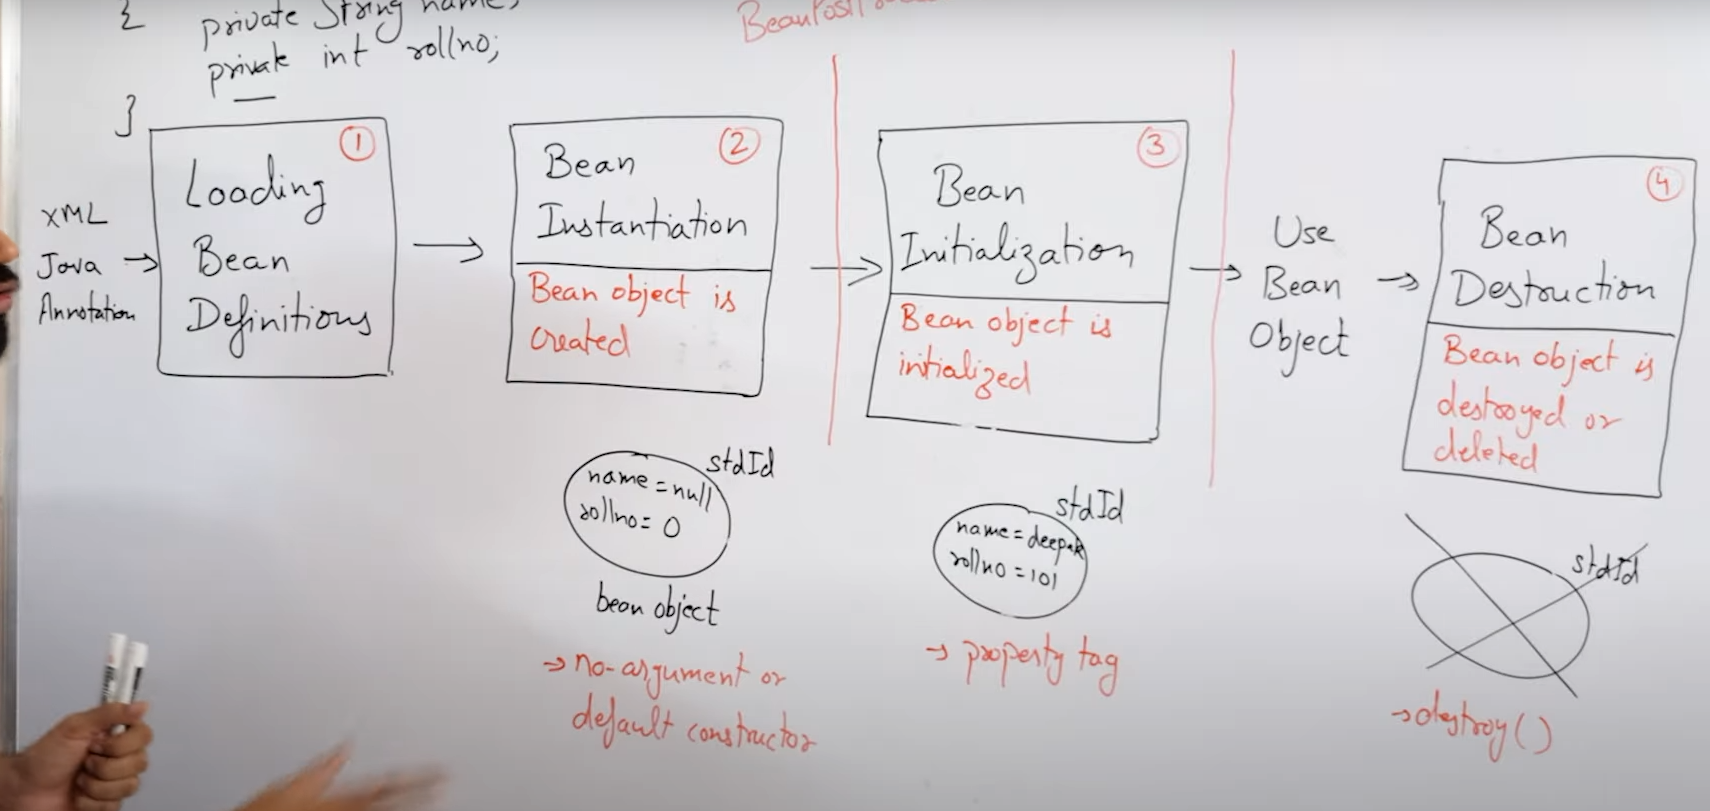 { private String name;
private int rollno;
}
XML
Java
Annotation
→
1
Loading
Bean
Definitions
→
2
Bean
Instantiation
Bean object is
created
name = null
rollno = 0
stdId
bean object
→ no-argument or
default constructor
→
3
Bean
Initialization
Bean object is
initialized
stdId
name = deepak
rollno = 101
→ property tag
→
Use
Bean
Object
→
4
Bean
Destruction
Bean object is
destroyed or
deleted
stdId
→ destroy()